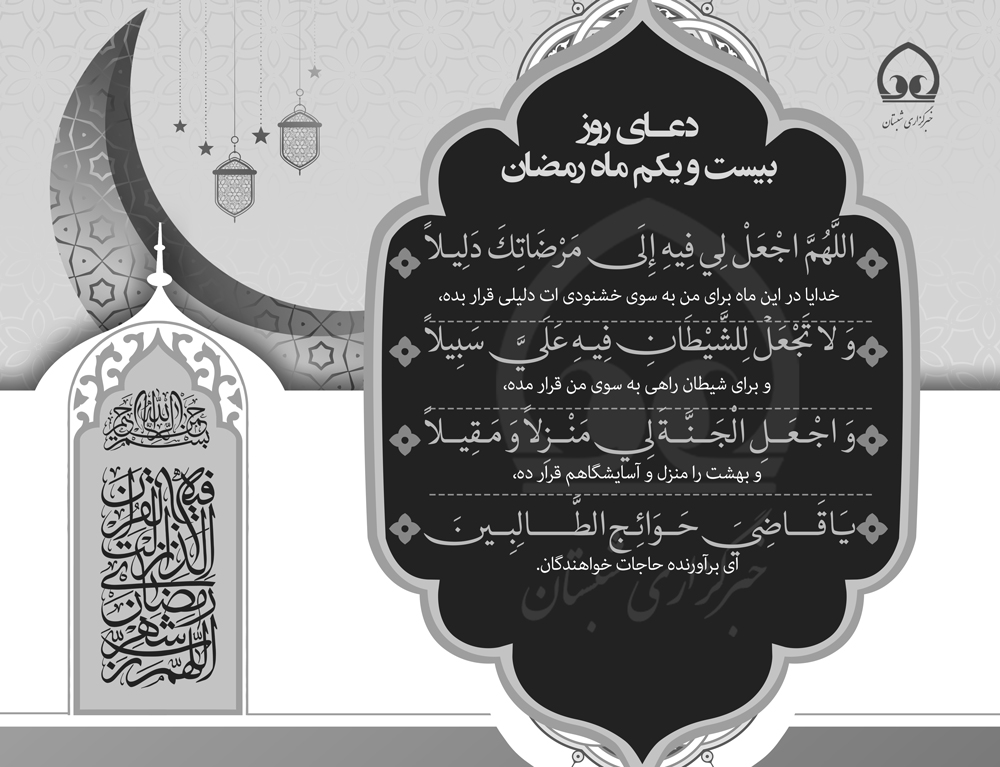 خبرگزاری شبستان
دعای روز
بیست و یکم ماه رمضان
اللَّهُمَّ اجْعَلْ لِي فِيهِ إِلَى مَرْضَاتِكَ دَلِيلاً
خدایا در این ماه برای من به سوی خشنودی ات دلیلی قرار بده،
وَ لا تَجْعَلْ لِلشَّيْطَانِ فِيهِ عَلَيَّ سَبِيلاً
و برای شیطان راهی به سوی من قرار مده،
وَ اجْعَلِ الْجَنَّةَ لِي مَنْزِلاً وَ مَقِيلاً
و بهشت را منزل و آسایشگاهم قرار ده،
يَا قَاضِيَ حَوَائِجِ الطَّالِبِينَ
ای برآورنده حاجات خواهندگان.
خبرگزاری شبستان
بسم الله الرحمن الرحیم
اللهم رب شهر رمضان الذی انزلت فیه القرآن